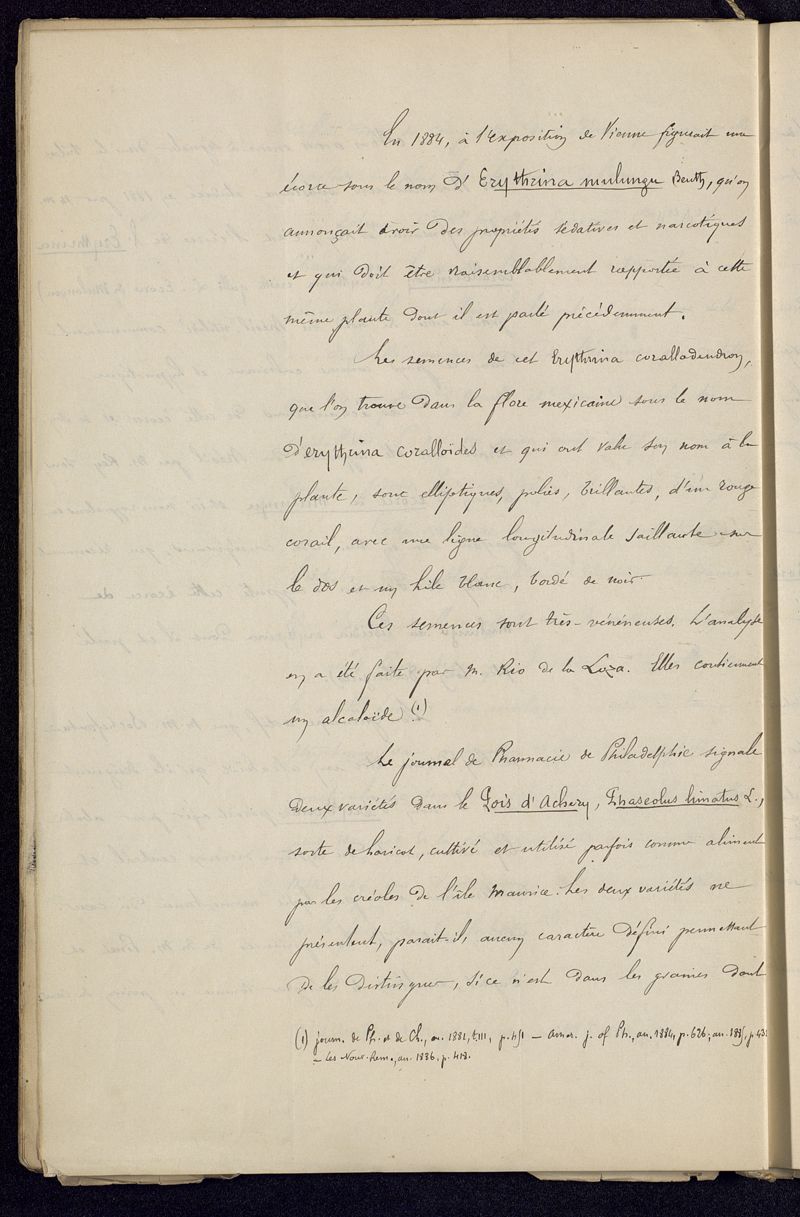 En 1884, à l'exposition de Vienne figurait une
écorce sous le nom d'Erythrina mulungu Benth, qu'on
annonçait avoir des propriétés sédatives et narcotiques
et qui doit être vraisemblablement rapportée à cette
même plante dont il est parlé précédemment.
Les semences de cet Erythrina coralladendron,
que l'on trouve dans la flore mexicaine sous le nom
d'erythrina coralloïdes et qui ont valu son nom à la
plante, sont elliptiques, polies, brillantes, d'un rouge
corail, avec une ligne longitudinale saillante sur
le dos et un hile blanc, bordé de noir.
Ces semences sont très-vénéneuses. L'analyse
en a été faite par M. Rio de la Loza. Elles contiennent
un alcaloïde (1)
Le journal de Pharmacie de Philadelphie signale
deux variétés dans le Pois d'Achery, Phaseolus lunatus L.,
sorte de haricot, cultivé et utilisé parfois comme aliment
par les créoles de l'île Maurice. Les deux variétés ne
présentent, parait-il, aucun caractère défini permettant
de les distinguer, si ce n'est dans les graines dont
(1) journ. de Ph. et de Ch., an. 1881, t. III, p. 451 — Amer. j. of Ph., an. 1884, p. 626; an. 1885, p.
— Les Nouv. Rem., an. 1886, p. 418.